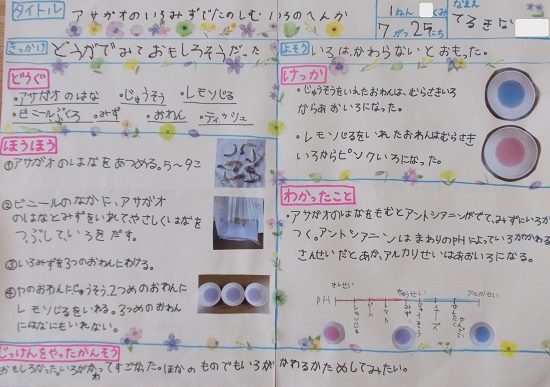 タイトル
アサガオのいろみずでたのしむ いろのへんか
1ねん くみ
7がつ27にち
なまえ
きっかけ どうがでみて おもしろそうだった
よそう いろは、かわらないとおもった。
どうぐ
・アサガオのはな ・じゅうそう ・レモンじる
・ビニールぶくろ ・みず ・おわん ・ティッシュ
ほうほう
①アサガオのはなをあつめる。5〜9こ
②ビニールのなかに、アサガオ
のはなとみずをいれてやさしくはなを
つぶしていろをだす。
③いろみずを3つのおわんにわける。
のおわんにじゅうそう、2つめのおわんに
レモンじるをいれる。3つめのおわん
にはなにもいれない。
じっけんをやったかんそう
おもしろかった。いろがかわってすごかった。ほかのものでもいろがかわるかためしてみたい。
けっか
・じゅうそうをいれたおわんは、むらさきいろ
からあおいろになった。
・レモンじるをいれたおわんはむらさき
いろからピンクいろになった。
わかったこと
・アサガオのはなをもむとアントシアニンがでて、みずにいろが
つく。アントシアニンはまわりのpHによっていろがかわる
さんせいだとあか、アルカリせいはあおいろになる。
さんせい ちゅうせい アルカリせい
PH
レモンじる
トマト
みず